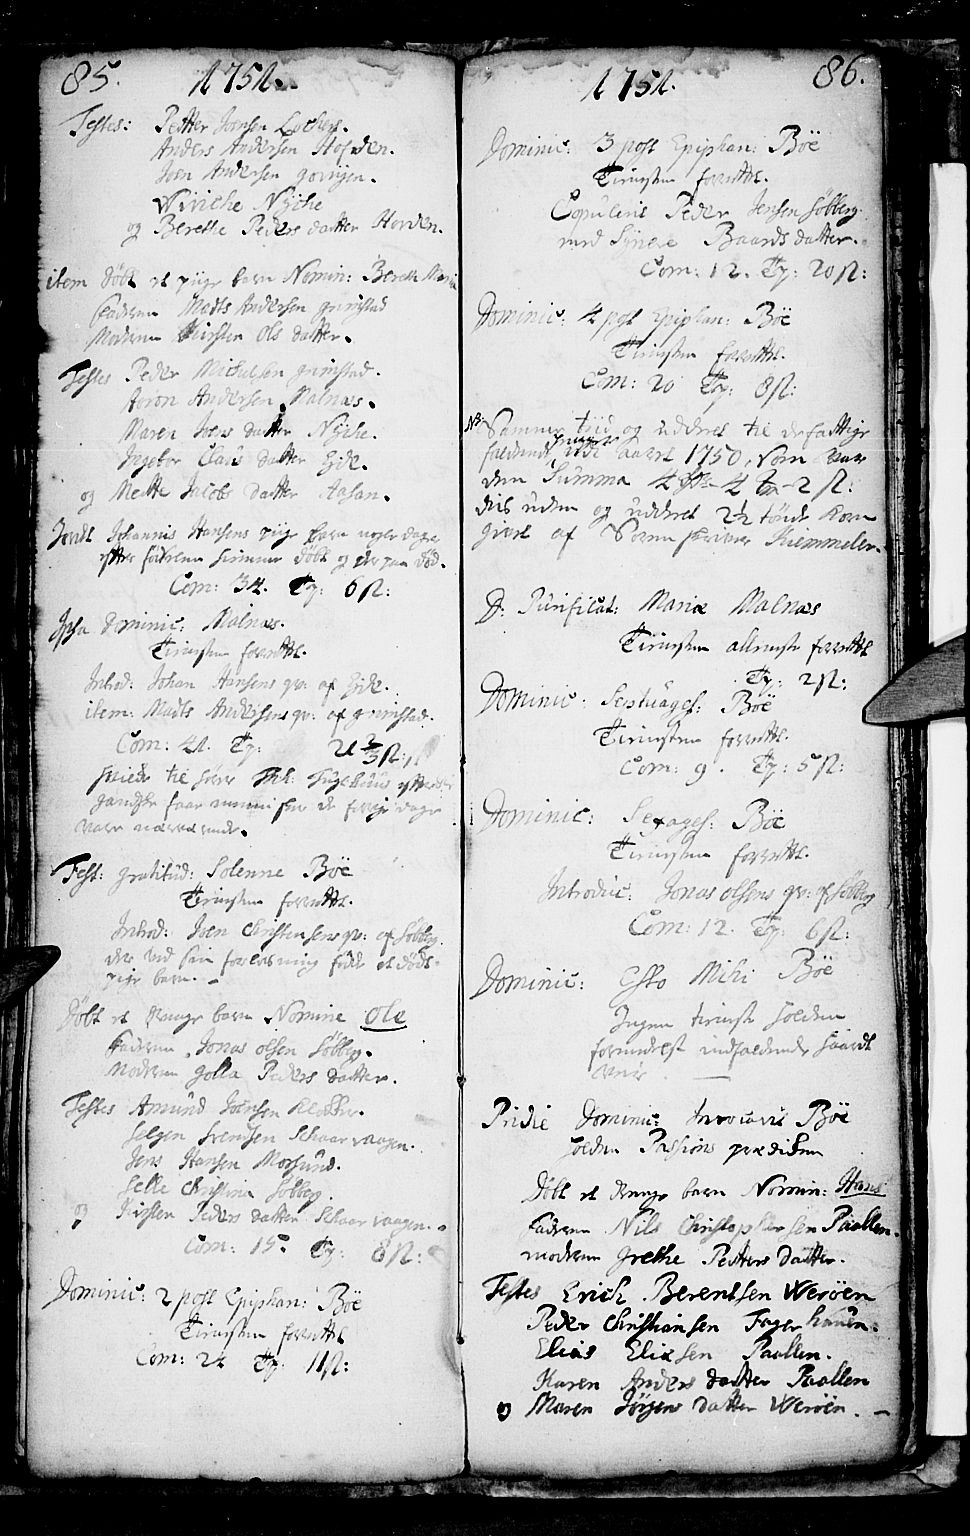 85. 1751.
Testes: Petter Jonsen
Anders Andersen Hofden.
Joen Andersen
Wiviche Nyche
og Berethe Peders datter Horden.
item Døbt et piige barn Nomin: Bereth Maria
Faderen Madts Andersen grimstad
Moderen Kirsten Ols datter.
Testes Peder Michelsen grimstad.
Aaron Andersen Malnæs.
Maren Joens datter Nyche.
Ingebor Claus datter Eide.
og Mette Jacobs datter Aasan.
Johannis Hansens piige barn nogen dage
efter hiemme døbt og der paa død.
Com: 34. Tp: 6 ß:
Ipsa dominic: Malnæs.
Tienesten forrettet.
Introd: Johan Hansens qv: af Eide.
item: Madts Andersens qv: af grimstad.
Com: 41. Tp: 2
til
gandske faar dage
vare nærværende.
Fest: gratitud: Solenne Böe
Tienesten forrettet.
Introd: Joen Christensens qv: af Søberg.
der ved sin forløsning fødde et dødt
pige barn. -
Døbt et drenge barn Nomine Ole
Faderen Jonas olsen Søberg.
Moderen golla Peders datter.
Testes Amund Joensen Klocker.
Helgen Svendsen Schaarvaagen.
Jens Hansen Morsund.
Helle Christina Søberg.
og Kirsten Peders datter Schaarvaagen.
Com: 15. Tp: 8 ß:
Dominic: 2 post Epiphan: Böe
Tienesten forrettet
Com: 24 Tp: 11 ß:
86.
1751.
Dominic: 3 post Epiphan: Böe
Tienesten forrettet.
Copuleret Peder Jensen Søberg
med Synere Baards datter.
Com: 12. Tp: 20 ß:
Dominic: 4 post Epiphan: Böe
Tienesten forrettet.
Com: 20 Tp: 8 ß:
NB: Samme tiid og uddeelt til de fattige
aaret 1750, som var
den Summa 4 4 2 ß:
des uden og uddeelt 2½ tönde Korn
givet af Sorenskriver Kiemmeler.
D: Purificat: Mariæ Malnæs
Tienesten forrettet
Tp: 2 ß:
Dominic: Septuages: Böe
Tienesten forrettet.
Com: 9. Tp: 5 ß:
Dominic: Sexages: Böe
Tienesten forrettet.
Introduc: Jonas olsens qv: af Søberg
Com: 12. Tp: 6 ß:
Dominic: Esto Mihi Böe
Ingen tieneste holden
formedelst indfaldende haardt
veir.
Pridie Dominic: Invocavit Böe
holden Passions prædiken
Döbt et drenge barn Nomin: Hans
Faderen Nils Christophersen Paallen.
moderen grethe Petters datter.
Testes Erich Berentsen Weröen
Peder Christiansen Fagerhauen.
Elias Eliesen Paallen.
Karen Anders datter Paallen
og Maren Jörgens datter Weröen. -